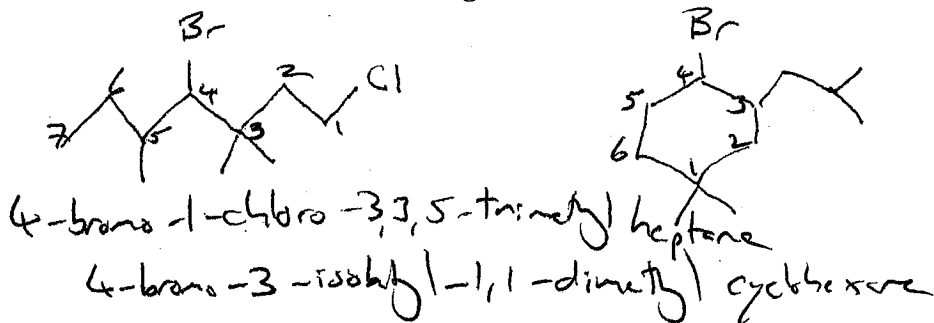 Br
Cl
7 6 5 4 3 2 1
Br
5 4 3 6 1 2
4-bromo-1-chloro-3,3,5-trimethyl heptane
4-bromo-3-isobutyl-1,1-dimethyl cyclohexane